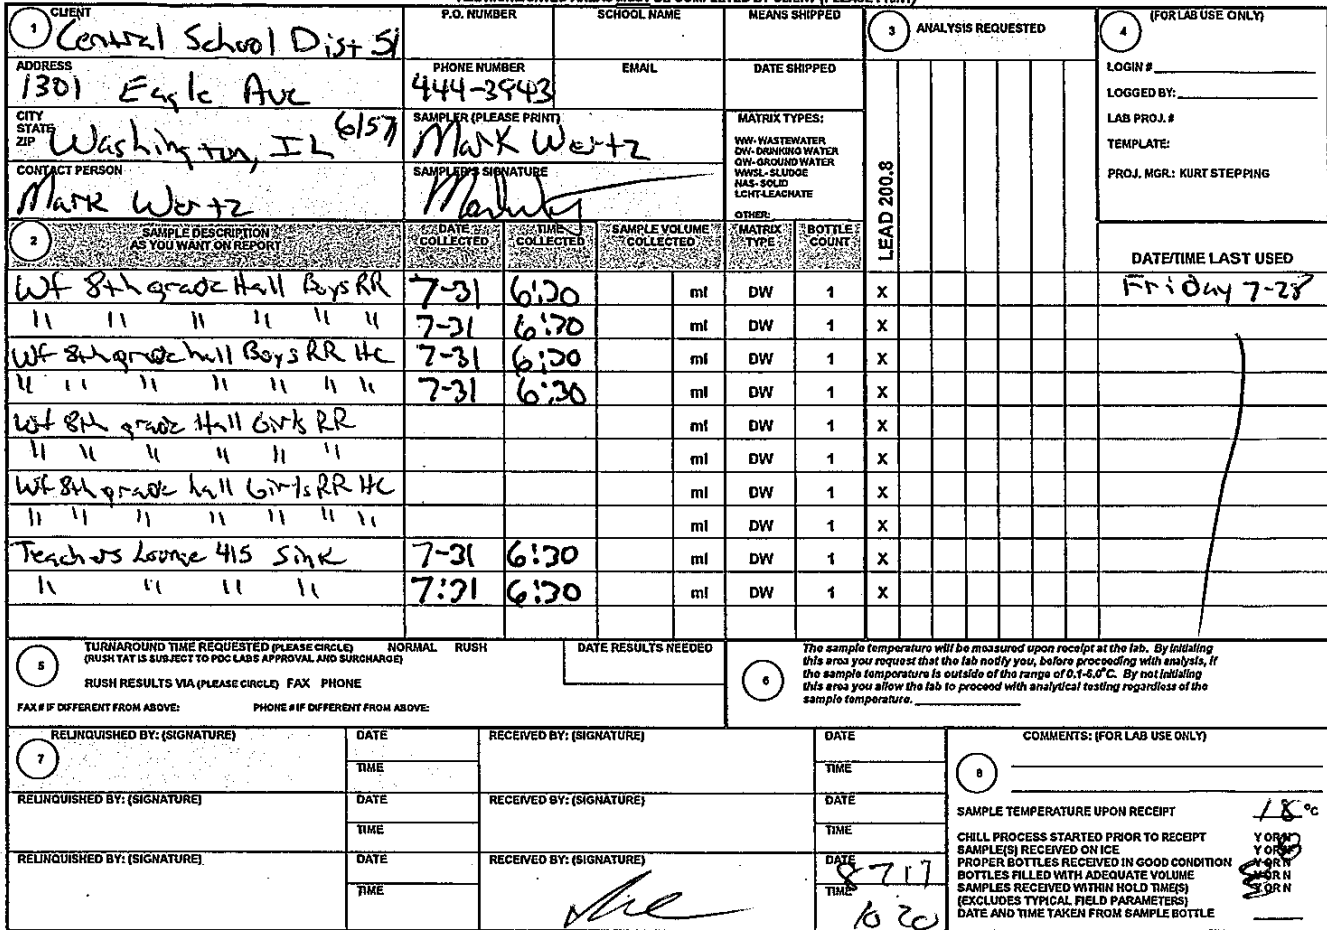 1 CLIENT
Central School Dist 51
P.O. NUMBER
SCHOOL NAME
MEANS SHIPPED
3 ANALYSIS REQUESTED
4 (FOR LAB USE ONLY)
ADDRESS
1301 Eagle Ave
PHONE NUMBER
444-3943
EMAIL
DATE SHIPPED
LOGIN #
LOGGED BY:
LAB PROJ. #
TEMPLATE:
PROJ. MGR.: KURT STEPPING
CITY
STATE
ZIP
Washington, IL 6157
SAMPLER (PLEASE PRINT)
Mark Wertz
MATRIX TYPES:
WW- WASTEWATER
DW- DRINKING WATER
GW- GROUND WATER
WWSL- SLUDGE
NAS- SOLID
LCHT-LEACHATE
OTHER:
CONTACT PERSON
Mark Wertz
SAMPLER'S SIGNATURE
LEAD 200.8
2 SAMPLE DESCRIPTION
AS YOU WANT ON REPORT
DATE COLLECTED
TIME COLLECTED
SAMPLE VOLUME COLLECTED
MATRIX TYPE
BOTTLE COUNT
DATE/TIME LAST USED
Wf 8th grade Hall Boys RR 7-31 6:30 ml DW 1 X Friday 7-28
" " " " " " 7-31 6:30 ml DW 1 X
Wf 8th grade hall Boys RR HC 7-31 6:30 ml DW 1 X
" " " " " " " 7-31 6:30 ml DW 1 X
Wf 8th grade Hall Girls RR ml DW 1 X
" " " " " " ml DW 1 X
Wf 8th grade hall Girls RR HC ml DW 1 X
" " " " " " " ml DW 1 X
Teachers Lounge 415 Sink 7-31 6:30 ml DW 1 X
" " " " 7:31 6:30 ml DW 1 X
5 TURNAROUND TIME REQUESTED (PLEASE CIRCLE) NORMAL RUSH
(RUSH TAT IS SUBJECT TO PDC LABS APPROVAL AND SURCHARGE)
RUSH RESULTS VIA (PLEASE CIRCLE) FAX PHONE
FAX # IF DIFFERENT FROM ABOVE: PHONE # IF DIFFERENT FROM ABOVE:
DATE RESULTS NEEDED
6 The sample temperature will be measured upon receipt at the lab. By initialing
this area you request that the lab notify you, before proceeding with analysis, if
the sample temperature is outside of the range of 0.1-6.0°C. By not initialing
this area you allow the lab to proceed with analytical testing regardless of the
sample temperature.
7 RELINQUISHED BY: (SIGNATURE) DATE
TIME
RECEIVED BY: (SIGNATURE) DATE
TIME
RELINQUISHED BY: (SIGNATURE) DATE
TIME
RECEIVED BY: (SIGNATURE) DATE
TIME
RELINQUISHED BY: (SIGNATURE) DATE
TIME
RECEIVED BY: (SIGNATURE) DATE 8 7 17
TIME 10 20
COMMENTS: (FOR LAB USE ONLY)
8
SAMPLE TEMPERATURE UPON RECEIPT 18 °C
CHILL PROCESS STARTED PRIOR TO RECEIPT Y OR N
SAMPLE(S) RECEIVED ON ICE Y OR N
PROPER BOTTLES RECEIVED IN GOOD CONDITION Y OR N
BOTTLES FILLED WITH ADEQUATE VOLUME Y OR N
SAMPLES RECEIVED WITHIN HOLD TIME(S) Y OR N
(EXCLUDES TYPICAL FIELD PARAMETERS)
DATE AND TIME TAKEN FROM SAMPLE BOTTLE